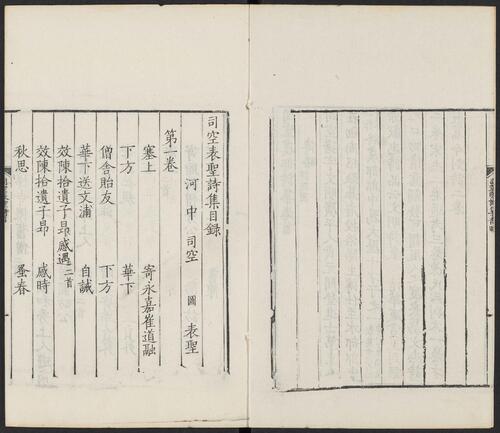 司空表聖詩集目錄
河中司空 圖 表聖
第一卷
塞上 寄永嘉崔道融
下方 華下
僧舍貽友 下方
華下送文浦 自誡
效陳拾遺子昻感遇二首
效陳拾遺子昻 感時
秋思 蚤春